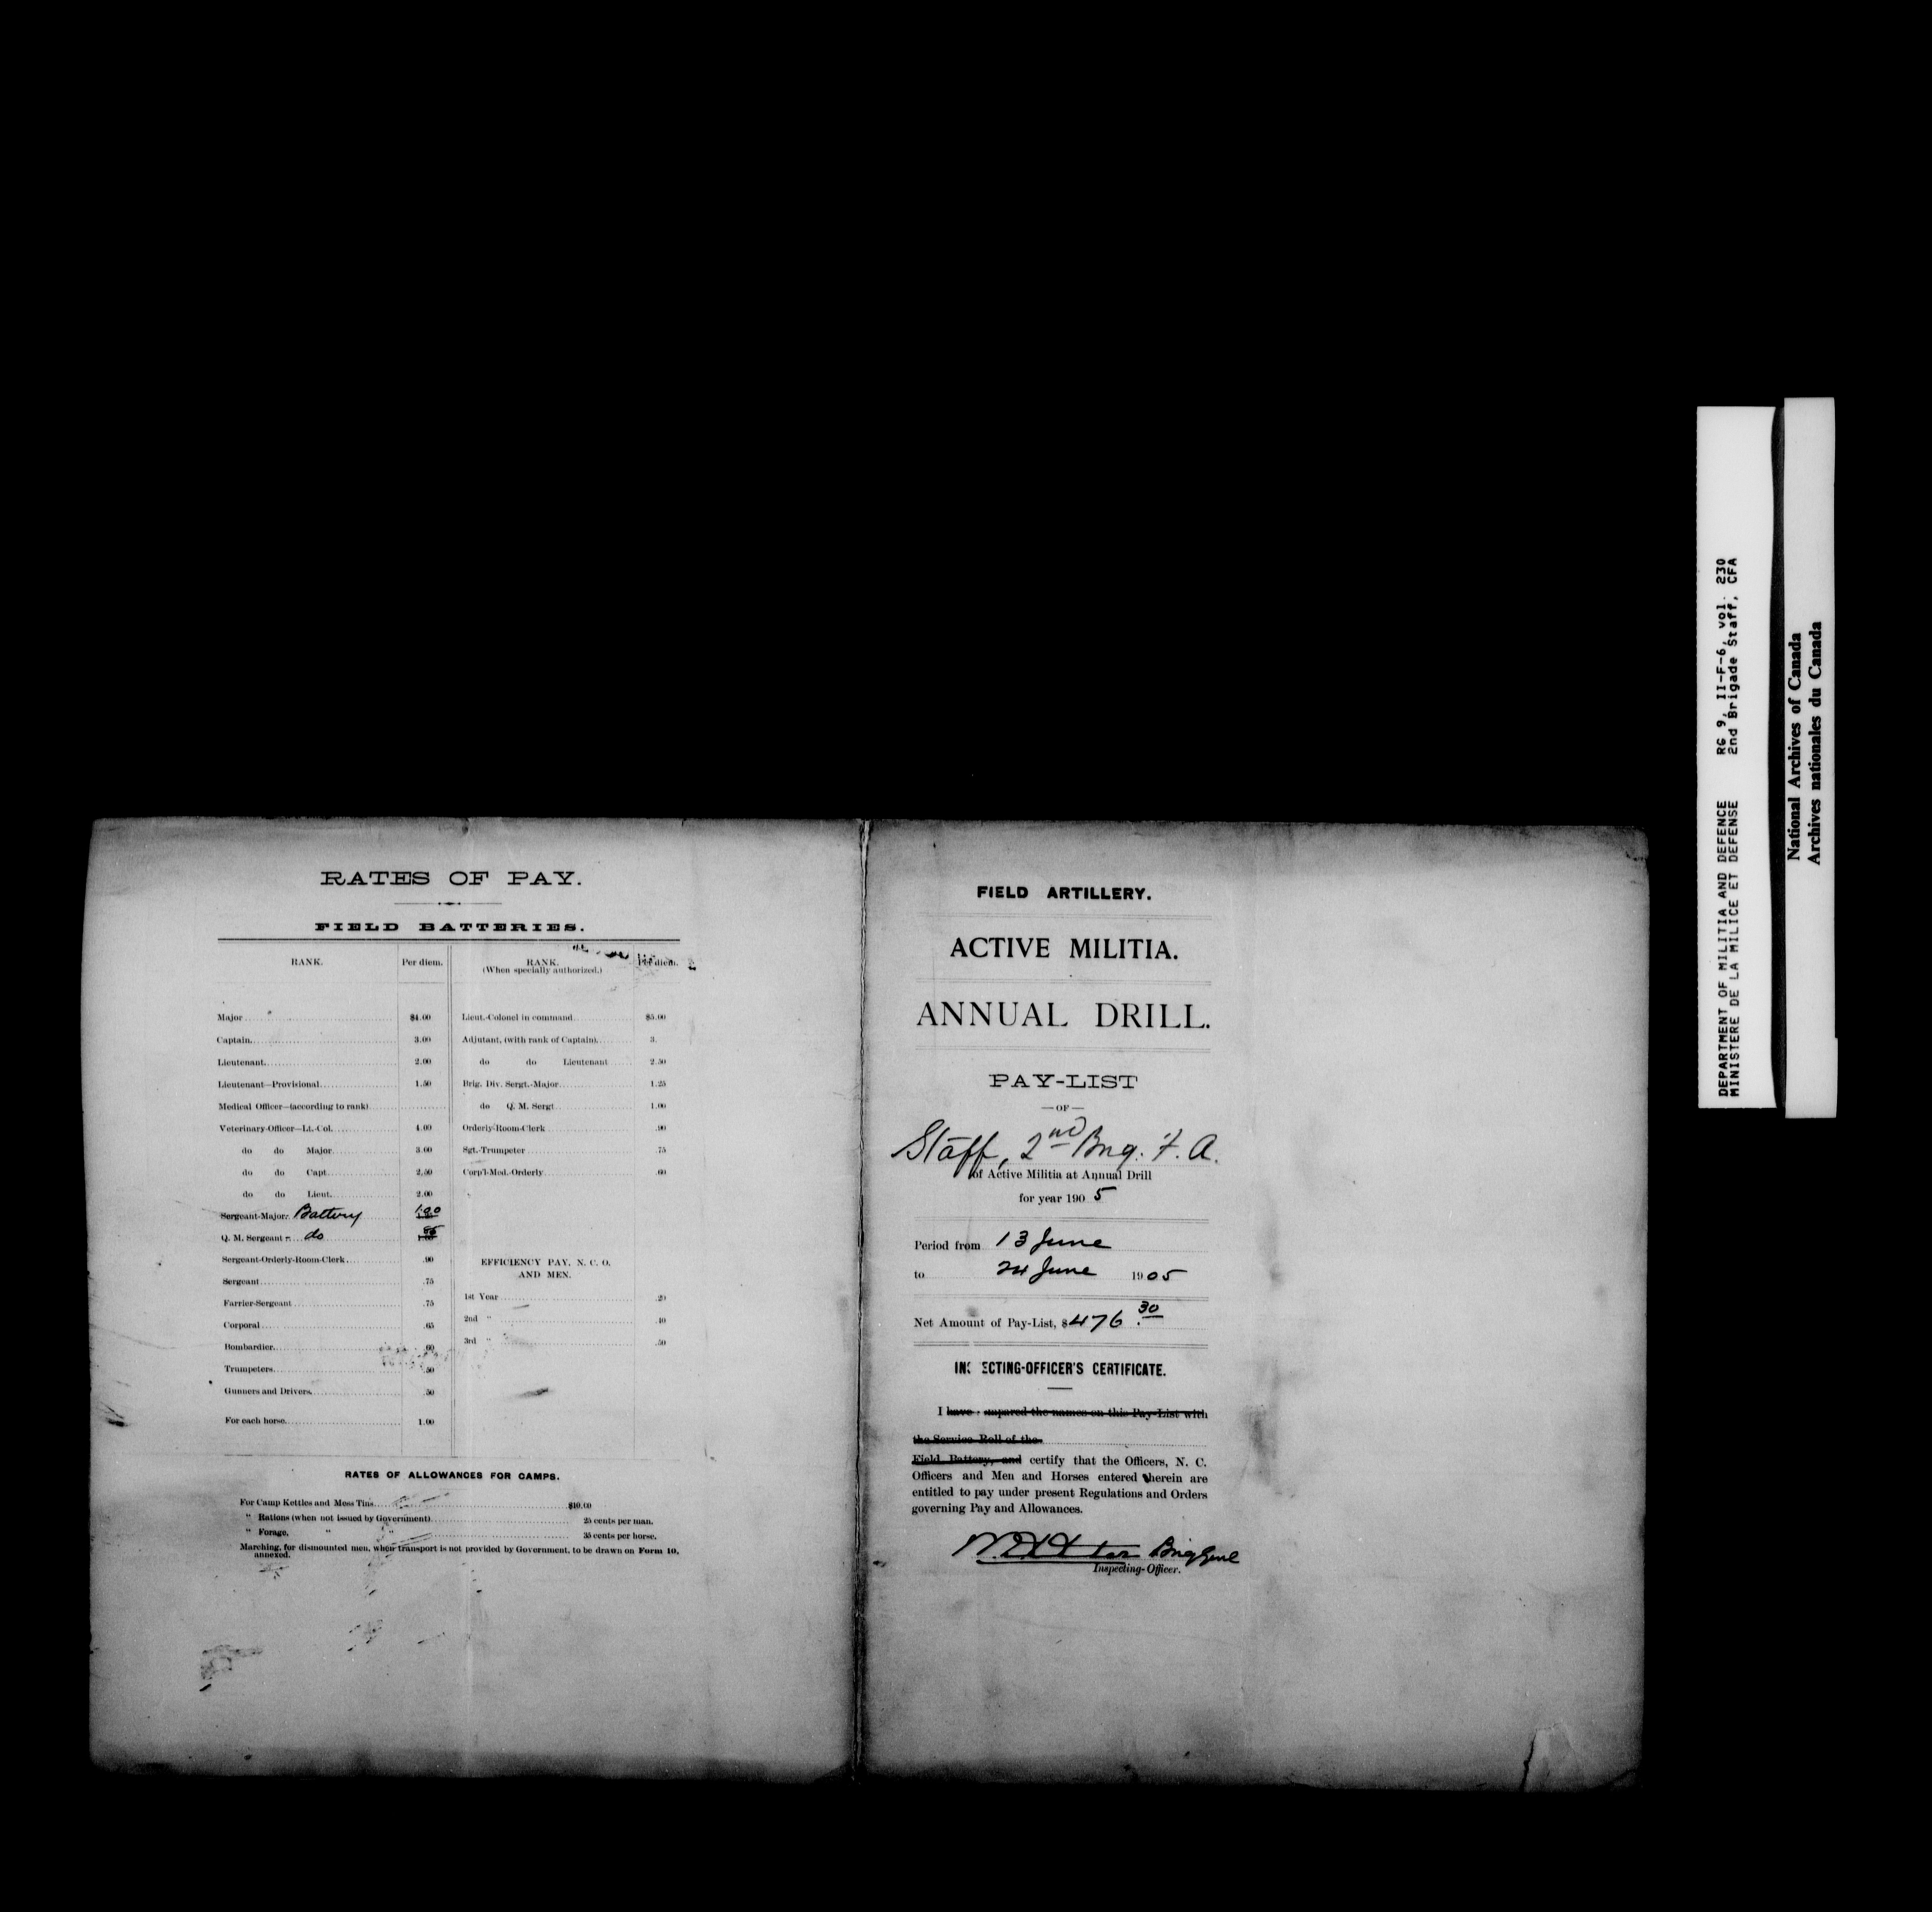 RATES OF PAY.
FIELD BATTERIES.
RANK. Per diem.
Major $4.00
Captain. 3.00
Lieutenant. 2.00
Lieutenant—Provisional. 1.50
Medical Officer—(according to rank)
Veterinary-Officer—Lt.-Col. 4.00
do do Major. 3.00
do do Capt. 2.50
do do Lieut. 2.00
Sergeant-Major. Battery 1.00
Q. M. Sergeant do
Sergeant-Orderly-Room-Clerk .90
Sergeant .75
Farrier-Sergeant .75
Corporal .65
Bombardier. .60
Trumpeters. .50
Gunners and Drivers. .50
For each horse. 1.00
RANK. Per diem.
(When specially authorized.)
Lieut.-Colonel in command. $5.00
Adjutant, (with rank of Captain). 3.
do do Lieutenant 2.50
Brig. Div. Sergt.-Major 1.25
do Q. M. Sergt. 1.00
Orderly-Room-Clerk .90
Sgt.-Trumpeter .75
Corp'l-Med.-Orderly .60
EFFICIENCY PAY, N. C. O.
AND MEN.
1st Year .20
2nd " .40
3rd " .50
RATES OF ALLOWANCES FOR CAMPS.
For Camp Kettles and Mess Tins $10.00
" Rations (when not issued by Government) 25 cents per man.
" Forage, " " 35 cents per horse.
Marching, for dismounted men, when transport is not provided by Government, to be drawn on Form 10,
annexed.
FIELD ARTILLERY.
ACTIVE MILITIA.
ANNUAL DRILL.
PAY-LIST
—OF—
Staff, 2nd Brig. F. A.
of Active Militia at Annual Drill
for year 1905
Period from 13 June
to 24 June 1905
Net Amount of Pay-List, $476.30
INSPECTING-OFFICER'S CERTIFICATE.
I have compared the names on this Pay-List with
the Service Roll of the
Field Battery, and certify that the Officers, N. C.
Officers and Men and Horses entered therein are
entitled to pay under present Regulations and Orders
governing Pay and Allowances.
Brig Genl
Inspecting-Officer.
DEPARTMENT OF MILITIA AND DEFENCE RG 9, II-F-6, vol. 230
MINISTERE DE LA MILICE ET DEFENSE 2nd Brigade Staff, CFA
National Archives of Canada
Archives nationales du Canada